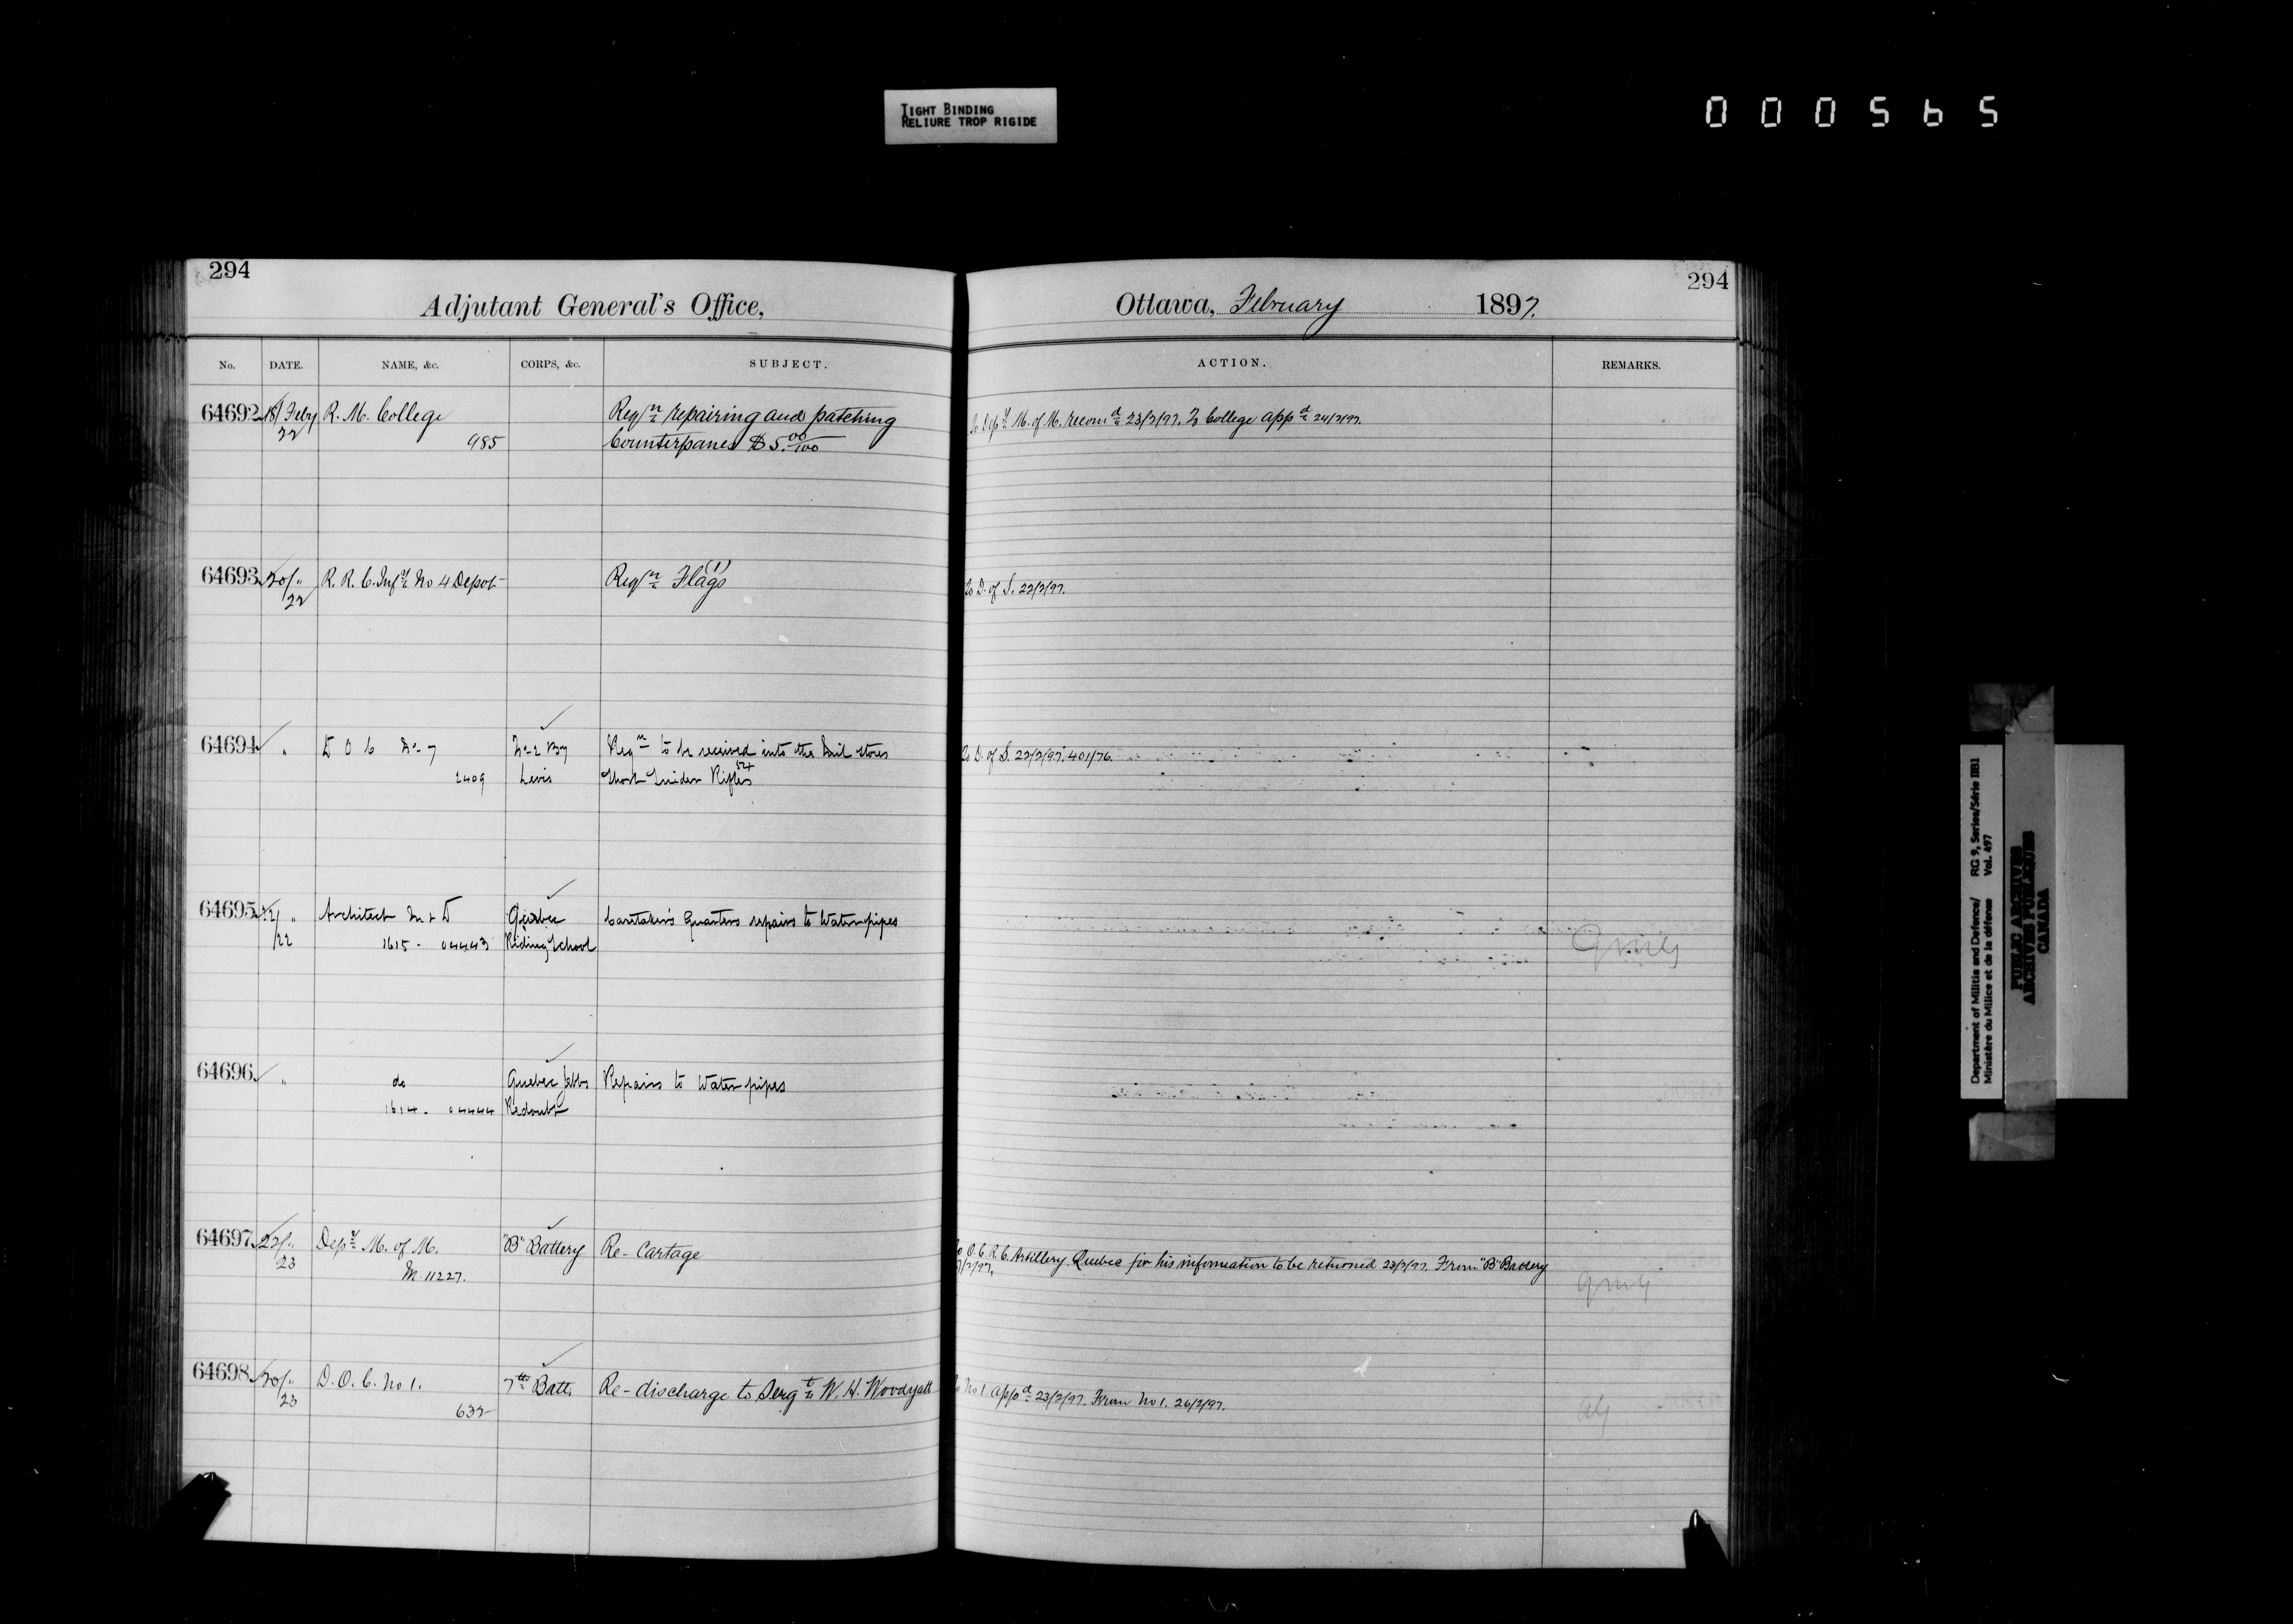 TIGHT BINDING
RELIURE TROP RIGIDE
000565
294
Adjutant General's Office,
No. DATE. NAME, &c. CORPS, &c. SUBJECT.
64692 18/ Feby R. M. College Reqn repairing and patching
22 985 Counterpanes $5.00/100
64693 20/ " R. R. C. Infy No 4 Depot Reqn Flags (1)
22
64694 " D O C No 7 No 2 By Reqn to be received into the Mil Stores
2409 Levis Short Snider Rifles 54
64695 22/ " Architect M & D Quebec Caretaker's Quarters repairs to Water pipes
/22 1615 - 04443 Riding School
64696 " do Quebec Jebbs Repairs to Water pipes
1614 - 04444 Redoubt
64697 22/ " Depy M. of M. "B" Battery Re- Cartage
23 M. 11227.
64698 20/ " D. O. C. No 1. 7th Batt. Re- discharge to Sergt W. H. Woodyatt
23 632
294
Ottawa, February 1897.
ACTION. REMARKS.
To Depy M. of M. recomd 23/2/97. To College appd 24/2/97.
To D. of S. 22/2/97.
To D. of S. 22/2/97. 401/76.
To O. C. R. C. Artillery Quebec for his information to be returned 23/2/97. From "B" Battery
To No 1. appd 23/2/97. From No 1. 26/2/97.
Department of Militia and Defence/ RG 9, Series/Série IIB1
Ministère du Milice et de la défense Vol. 497
PUBLIC ARCHIVES
ARCHIVES PUBLIQUES
CANADA